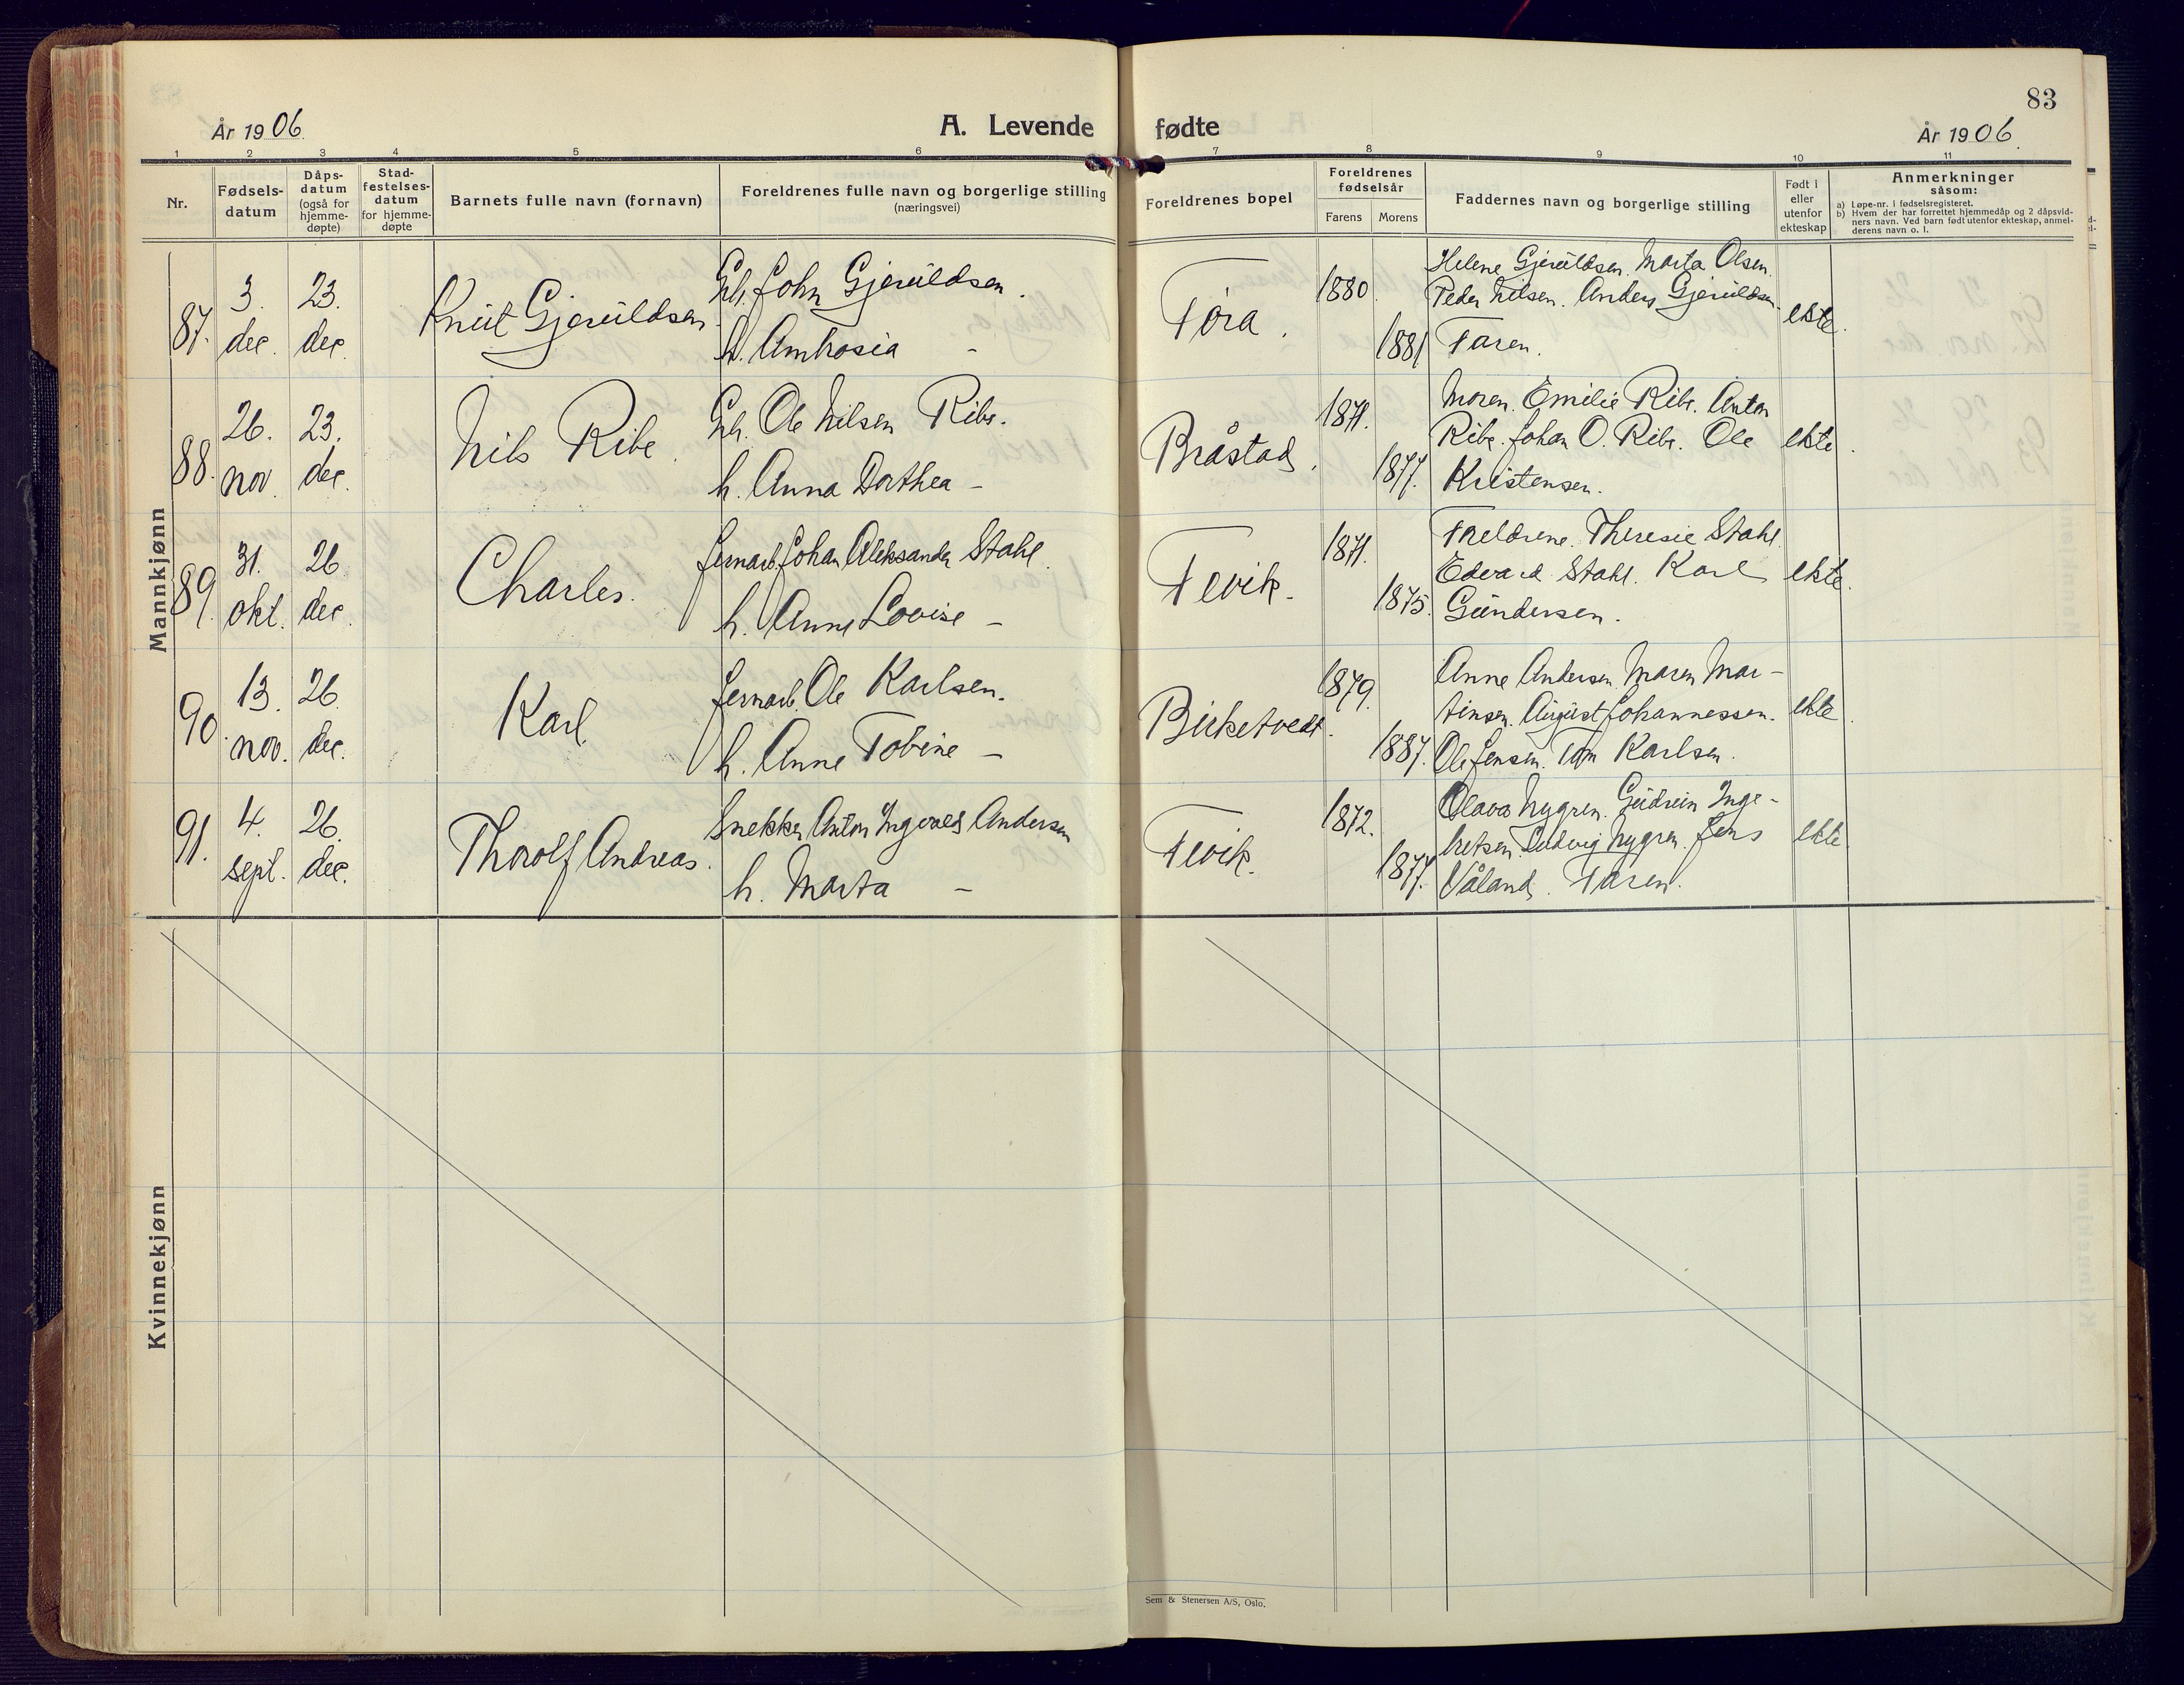 83
År 1906.
A. Levende fødte
År 1906.
1 2 3 4 5 6 7 8 9 10 11
Nr.
Fødsels-
datum
Dåps-
datum
(også for
hjemme-
døpte)
Stad-
festelses-
datum
for hjemme-
døpte
Barnets fulle navn (fornavn)
Foreldrenes fulle navn og borgerlige stilling
(næringsvei)
Foreldrenes bopel
Foreldrenes
fødselsår
Farens Morens
Faddernes navn og borgerlige stilling
Født i
eller
utenfor
ekteskap
Anmerkninger
såsom:
a) Løpe-nr. i fødselsregisteret.
b) Hvem der har forrettet hjemmedåp og 2 dåpsvid-
ners navn. Ved barn født utenfor ekteskap, anmel-
derens navn o. l.
Mannkjønn
87.
3.
dec.
23.
dec.
Knut Gjeruldsen.
Gbr. John Gjeruldsen.
h. Ambrosia -
Tøra.
1880.
1881
Helene Gjeruldsen. Marta Olsen.
Peder Nilsen. Anders Gjeruldsen.
Faren.
ekte.
88.
26.
nov.
23.
dec.
Nils Ribe.
Gbr. Ole Nilsen Ribe.
h. Anna Dorthea -
Bråstad.
1871.
1877.
Moren. Emilie Ribe. Anton
Ribe. Johan O. Ribe. Ole
Kristensen.
ekte.
89.
31.
okt.
26
dec.
Charles.
Jernarb. Johan Aleksander Stahl.
h. Anne Lovise -
Fevik.
1871.
1875.
Foreldrene. Theresie Stahl.
Edvard Stahl. Karl
Gundersen.
ekte.
90.
13.
nov.
26.
dec.
Karl.
Jernarb. Ole Karlsen.
h. Anne Tobine -
Birketvedt.
1879.
1887.
Anne Andersen. Maren Mar-
tinsen. August Johannessen.
Ole Jensen. Tom Karlsen.
ekte.
91.
4.
sept.
26.
dec.
Thorolf Andreas.
Snekker Anton Ingvald Andersen
h. Marta -
Fevik.
1872.
1877.
Olava Nygren. Gudrun Inge-
bretsen. Ludvig Nygren. Jens
Våland. Faren.
ekte
Kvinnekjønn
Sem & Stenersen A/S, Oslo.